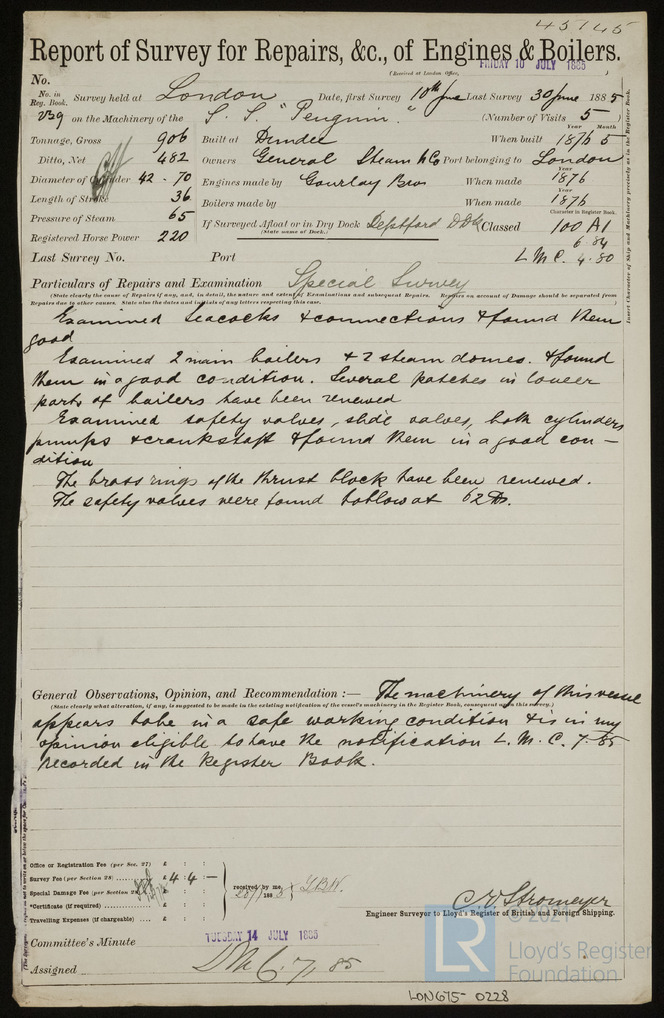 45145
Report of Survey for Repairs, &c., of Engines & Boilers.
(Received at London Office, FRIDAY 10 JULY 1885)
No.
No. in Reg. Book. Survey held at London Date, first Survey 10th June Last Survey 30 June 1885
on the Machinery of the S. S. "Penguin." (Number of Visits 5)
Year Month
Tonnage, Gross 906 Built at Dundee When built 1876 5
Ditto, Net 482 Owners General Steam N Co Port belonging to London
Diameter of Cylinder 42 - 70 Engines made by Gourlay Bros When made 1876
Length of Stroke 36 Boilers made by When made 1876
Pressure of Steam 65 If Surveyed Afloat or in Dry Dock Deptford Dk Classed 100 A1
(State name of Dock.) Character in Register Book.
Registered Horse Power 220 6 84
Last Survey No. Port L M C. 4.80
Particulars of Repairs and Examination Special Survey
(State clearly the cause of Repairs if any, and, in detail, the nature and extent of Examinations and subsequent Repairs. Repairs on account of Damage should be separated from
Repairs due to other causes. State also the dates and initials of any letters respecting this case.)
Examined Seacocks & connections & found them
good
Examined 2 main boilers & 2 steam domes. & found
them in a good condition. Several patches in lower
parts of boilers have been renewed
Examined safety valves, slide valves, both cylinders
pumps & crankshaft & found them in a good con-
dition
The brass rings of the thrust block have been renewed.
The safety valves were found to blow at 62 lbs.
Insert Character of Ship and Machinery precisely as in the Register Book.
General Observations, Opinion, and Recommendation :— The machinery of this vessel
(State clearly what alteration, if any, is suggested to be made in the existing notification of the vessel's machinery in the Register Book, consequent upon this survey.)
appears to be in a safe working condition & is in my
opinion eligible to have the notification L. M. C. 7.85
recorded in the Register Book.
Office or Registration Fee (per Sec. 27) £ : :
Survey Fee (per Section 28) £ 4 : 4 : —
Special Damage Fee (per Section 28) £ : :
*Certificate (if required) £ : :
Travelling Expenses (if chargeable) £ : :
received by me,
C. E. Stromeyer
Engineer Surveyor to Lloyd's Register of British and Foreign Shipping.
Committee's Minute TUESDAY 14 JULY 1885
Assigned L M C. 7, 85
© 2021
LR
Lloyd's Register
Foundation
LON675-0228